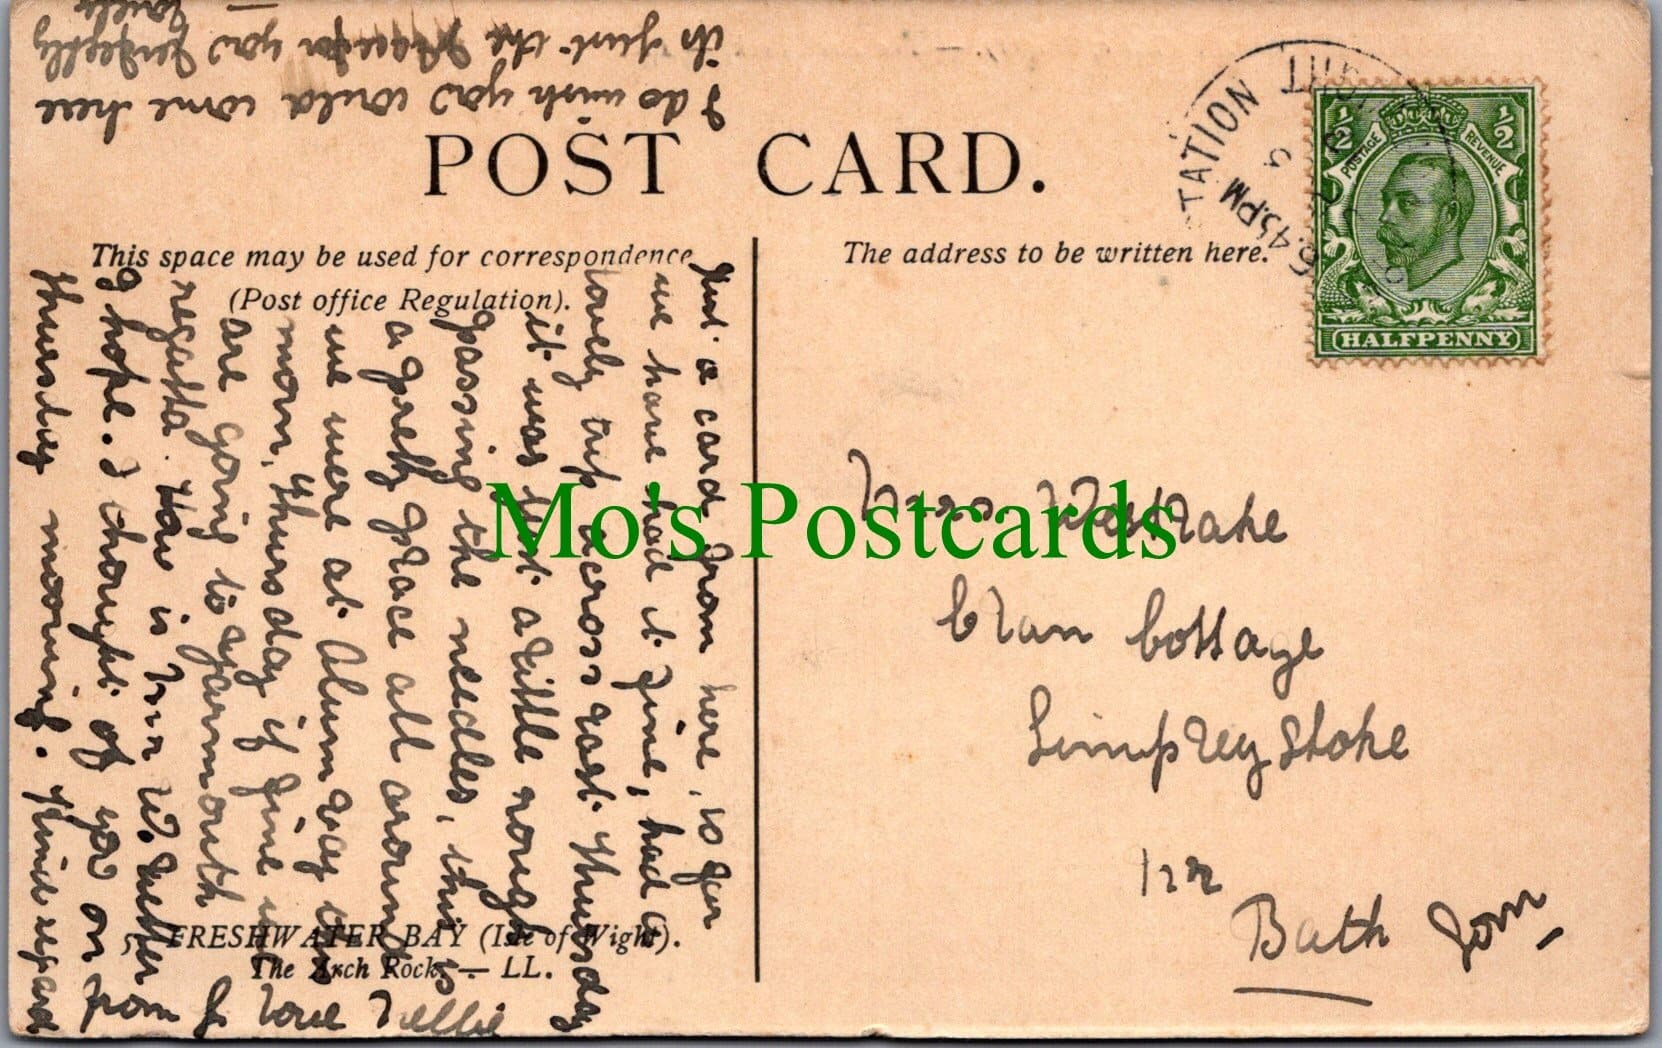 I do wish you could come here
its just the place for you perfectly
lovely
POST CARD.
TATION
6.45.PM
½ ½
POSTAGE REVENUE
HALFPENNY
This space may be used for correspondence
(Post office Regulation).
The address to be written here.
Just a card from here, is
we have had it fine, had a
lovely trip across last thursday
it was just a little rough
passing the needles, this is
a pretty place all around
we were at Alum Bay this
morn, thursday if fine we
are going to yarmouth
regatta. How is
I hope. I thought of you on
thursday morning. Kind regards
from & love Nellie
Westlake
Cottage
Limpley Stoke
Nr
Bath Som
Mo's Postcards
FRESHWATER BAY (Isle of Wight).
The Arch Rock. — LL.